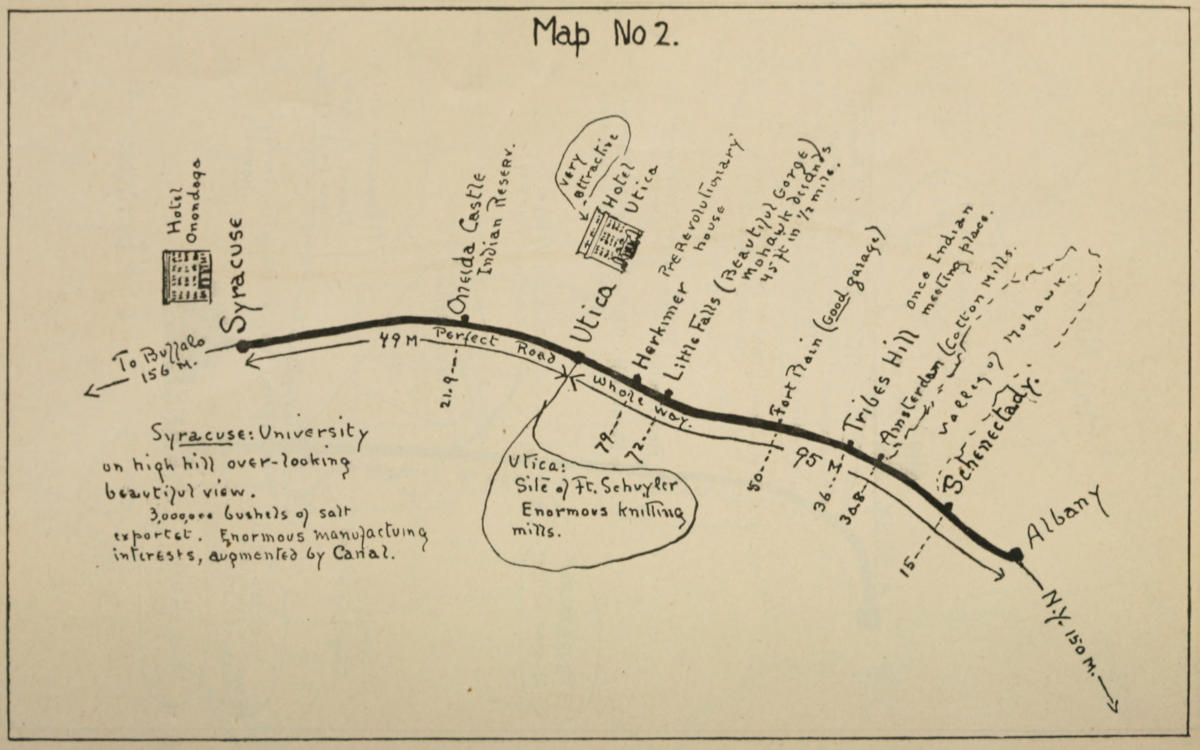 Map No 2.
Hotel
Onondaga
Syracuse
To Buffalo
156 M.
49 M
Perfect Road
Oneida Castle
Indian Reserv.
21.9
very
attractive
Hotel
Utica
Utica
Whole way.
Herkimer
PreRevolutionary
house
79
Little Falls (Beautiful Gorge)
Mohawk descends
45 ft in 1/2 mile.
72
Fort Plain (Good garage)
50
95 M
Tribes Hill
once Indian
meeting place.
36
Amsterdam (Cotton Mills.
30.8
Valley of Mohawk
Schenectady.
15
Albany
N.Y. 150 M.
Syracuse: University
on high hill over-looking
beautiful view.
3,000,000 bushels of salt
exportet. Enormous manufactuing
interests, augmented by Canal.
Utica:
Site of Ft. Schuyler
Enormous knitting
mills.